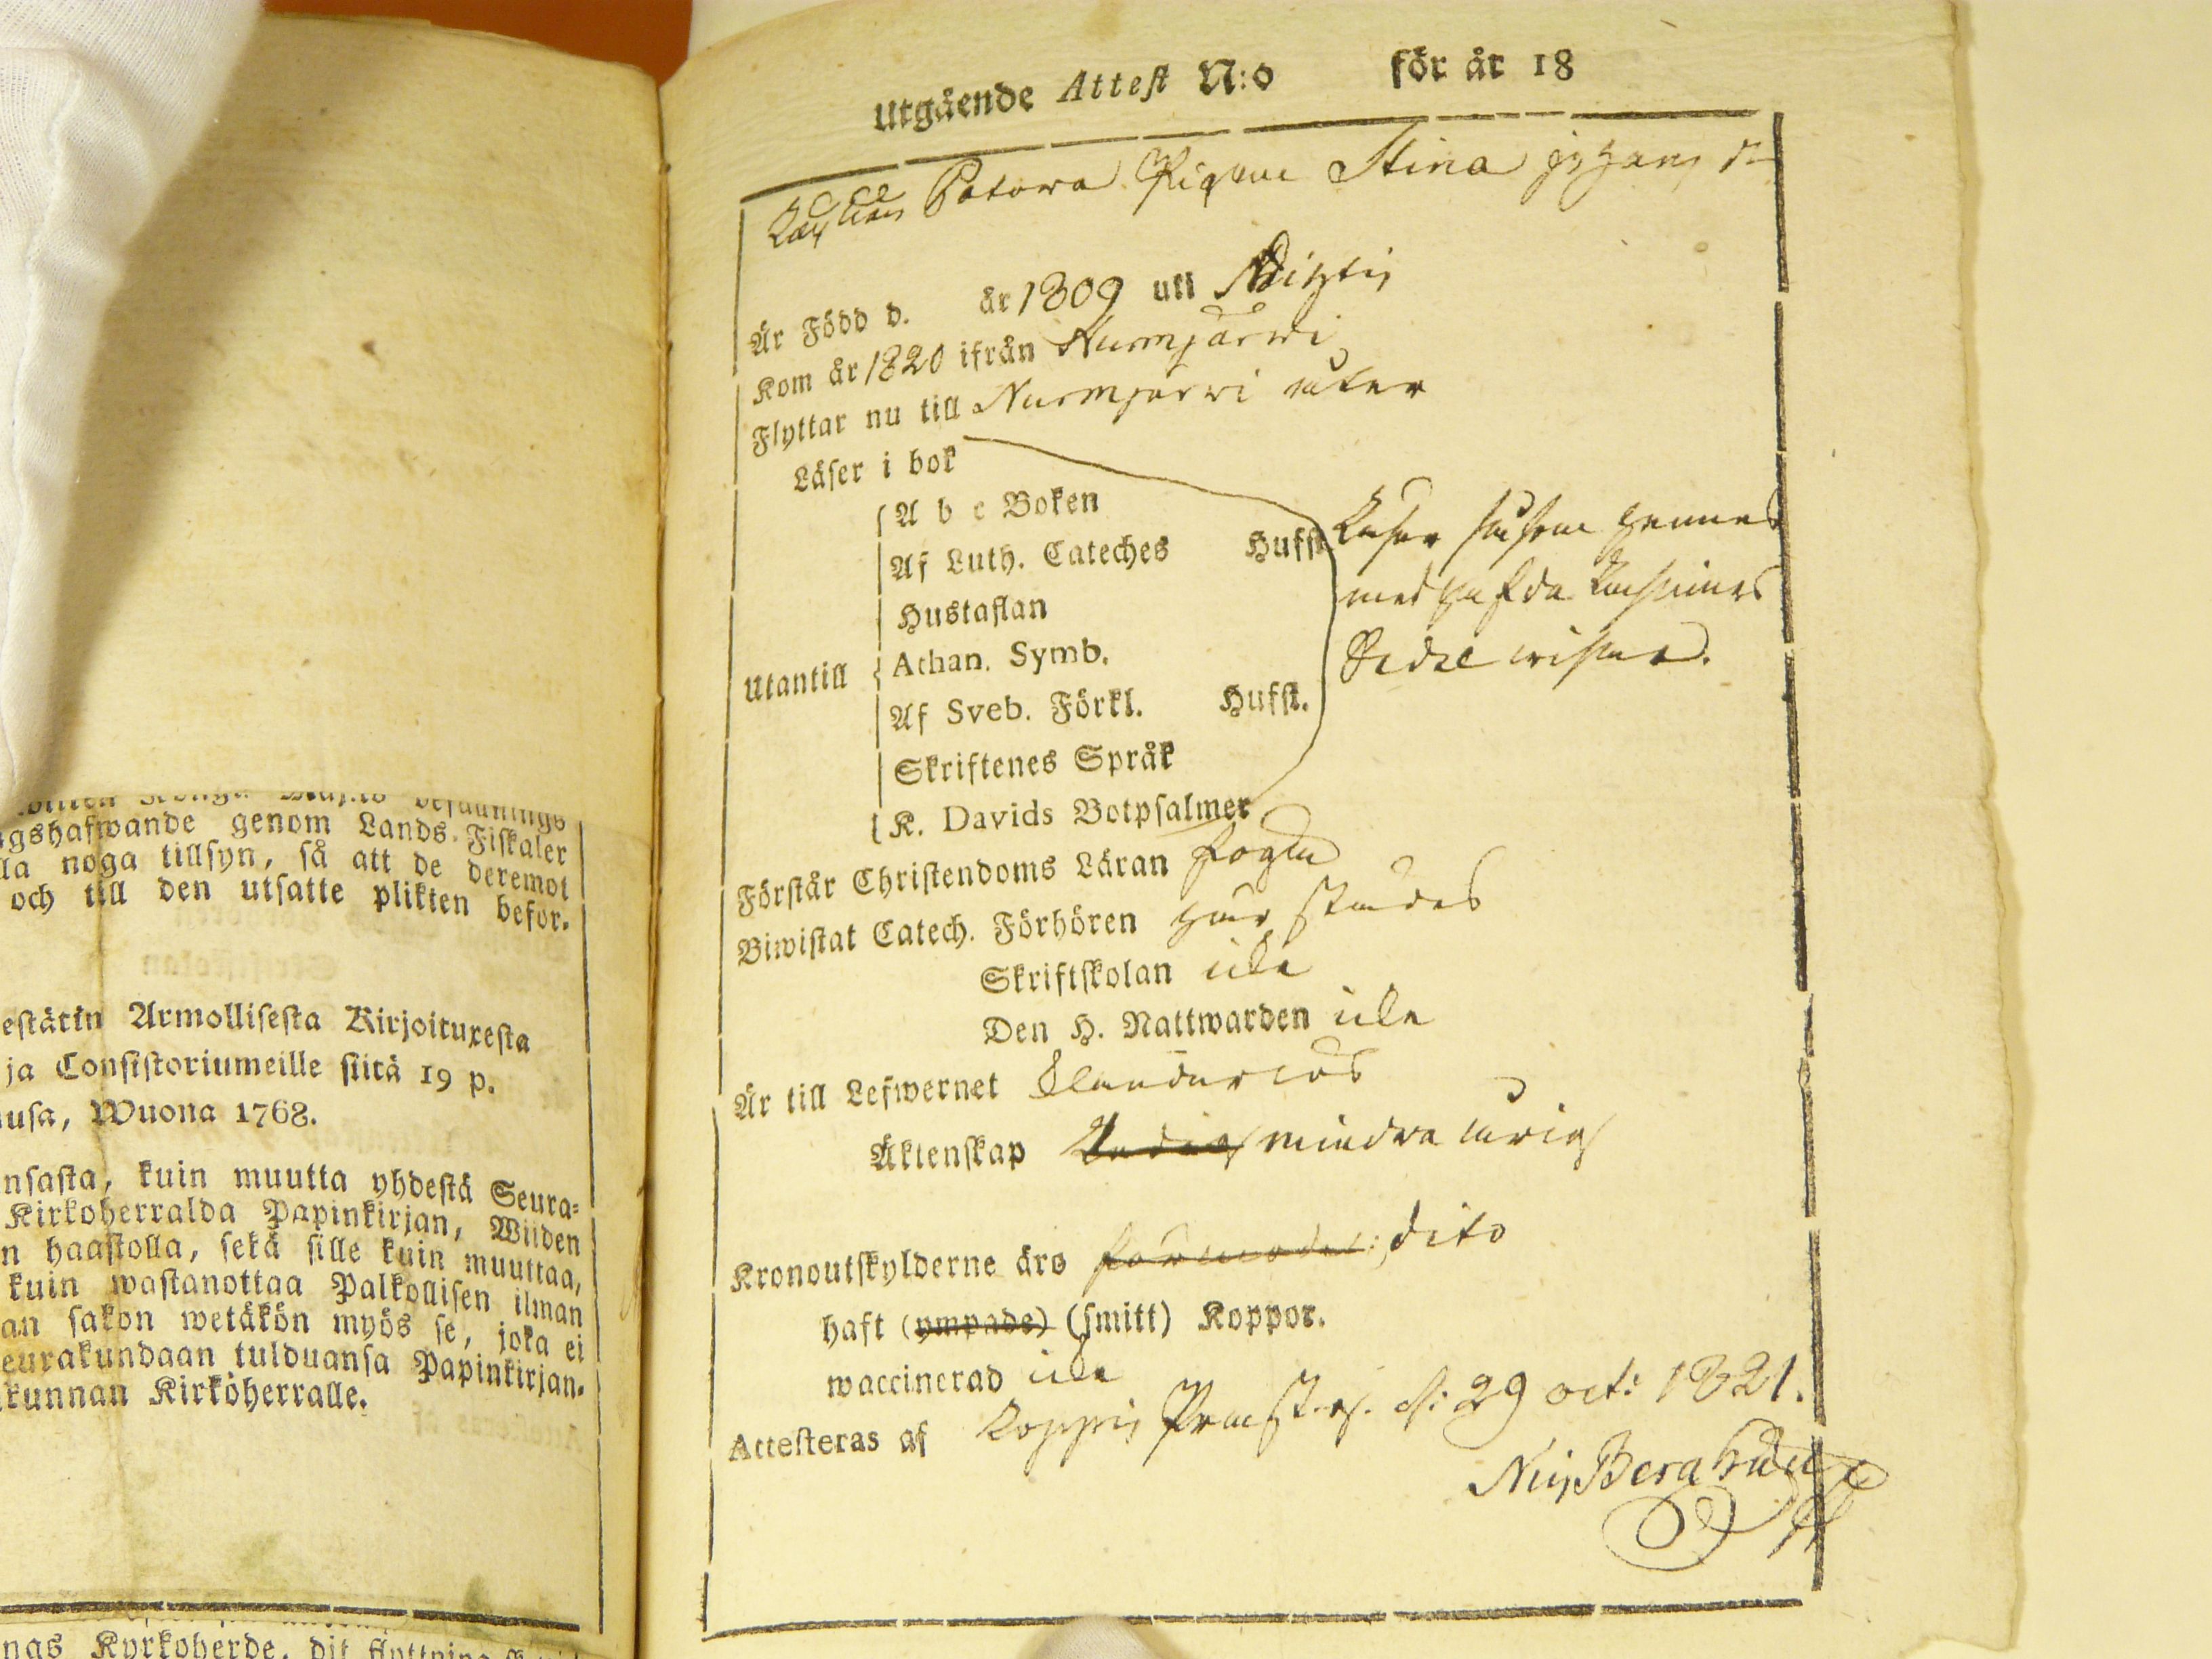 gshafwande genom Lands-Fiskaler
lla noga tillsyn, så att de deremot
och till den utsatte plikten befor.
estätin Armollisesta Kirjoituxesta
ja Consistoriumeille siitä 19 p.
usa, Wuona 1768.
nsasta, kuin muutta yhdestä Seura-
Kirkoherralda Papinkirjan, Wiiden
n haastolla, sekä sille kuin muuttaa,
kuin wastanottaa Palkollisen ilman
an sakon wetäkön myös se, joka ei
eurakundaan tulduansa Papinkirjan-
kunnan Kirköherralle.
ngs Kyrkoherde, dit
Utgående Attest N:o för år 18
Pigan Stina Johans dr
Är Född d. år 1809 uti
Kom år 1820 ifrån Nurmjärwi
Flyttar nu till Nurmjärwi åter
Läser i bok
A b c Boken
Af Luth. Cateches Hufst.
Läser såsom hennes
Hustaflan
medhafda
Utantill Athan. Symb.
Af Sveb. Förkl. Hufst.
Skriftenes Språk
K. Davids Botpsalmer
Förstår Christendoms Läran
Biwistat Catech. Förhören här städes
Skriftskolan icke
Den H. Nattwarden icke
Är till Lefwernet
Äktenskap Ledig mindre årig
Kronoutskylderne äro dito
haft (ympade) (smitt) Koppor.
waccinerad icke
Attesteras af d: 29 oct: 1821.